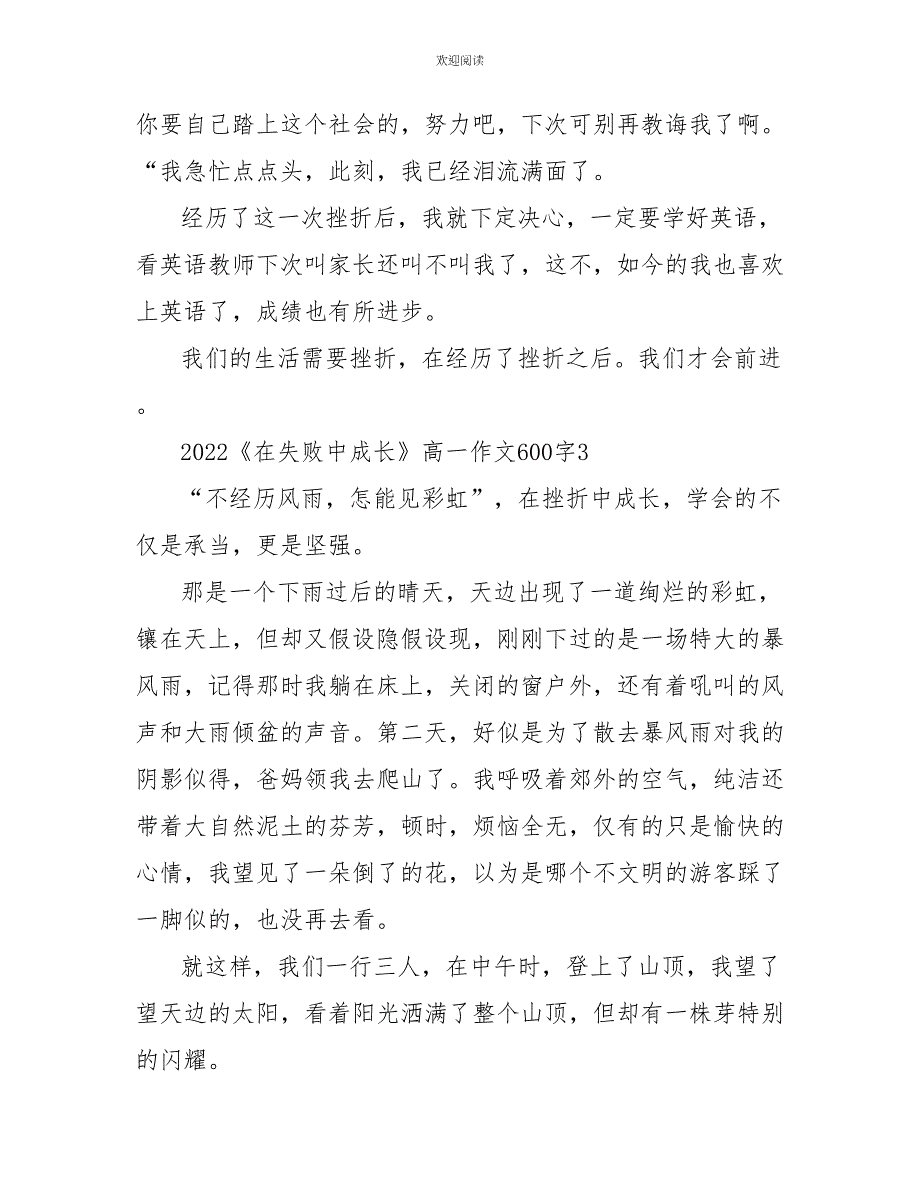 欢迎阅读
你要自己踏上这个社会的，努力吧，下次可别再教诲我了啊。
“我急忙点点头，此刻，我已经泪流满面了。
经历了这一次挫折后，我就下定决心，一定要学好英语，
看英语教师下次叫家长还叫不叫我了，这不，如今的我也喜欢
上英语了，成绩也有所进步。
我们的生活需要挫折，在经历了挫折之后。我们才会前进
。
2022《在失败中成长》高一作文600字3
“不经历风雨，怎能见彩虹”，在挫折中成长，学会的不
仅是承当，更是坚强。
那是一个下雨过后的晴天，天边出现了一道绚烂的彩虹，
镶在天上，但却又假设隐假设现，刚刚下过的是一场特大的暴
风雨，记得那时我躺在床上，关闭的窗户外，还有着吼叫的风
声和大雨倾盆的声音。第二天，好似是为了散去暴风雨对我的
阴影似得，爸妈领我去爬山了。我呼吸着郊外的空气，纯洁还
带着大自然泥土的芬芳，顿时，烦恼全无，仅有的只是愉快的
心情，我望见了一朵倒了的花，以为是哪个不文明的游客踩了
一脚似的，也没再去看。
就这样，我们一行三人，在中午时，登上了山顶，我望了
望天边的太阳，看着阳光洒满了整个山顶，但却有一株芽特别
的闪耀。